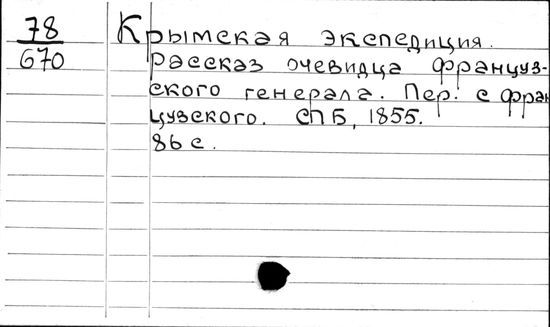 78
670
Крымская экспедиция.
Рассказ очевидца француз-
ского генерала. Пер. с фран
цузского. СПБ, 1855.
86 с.